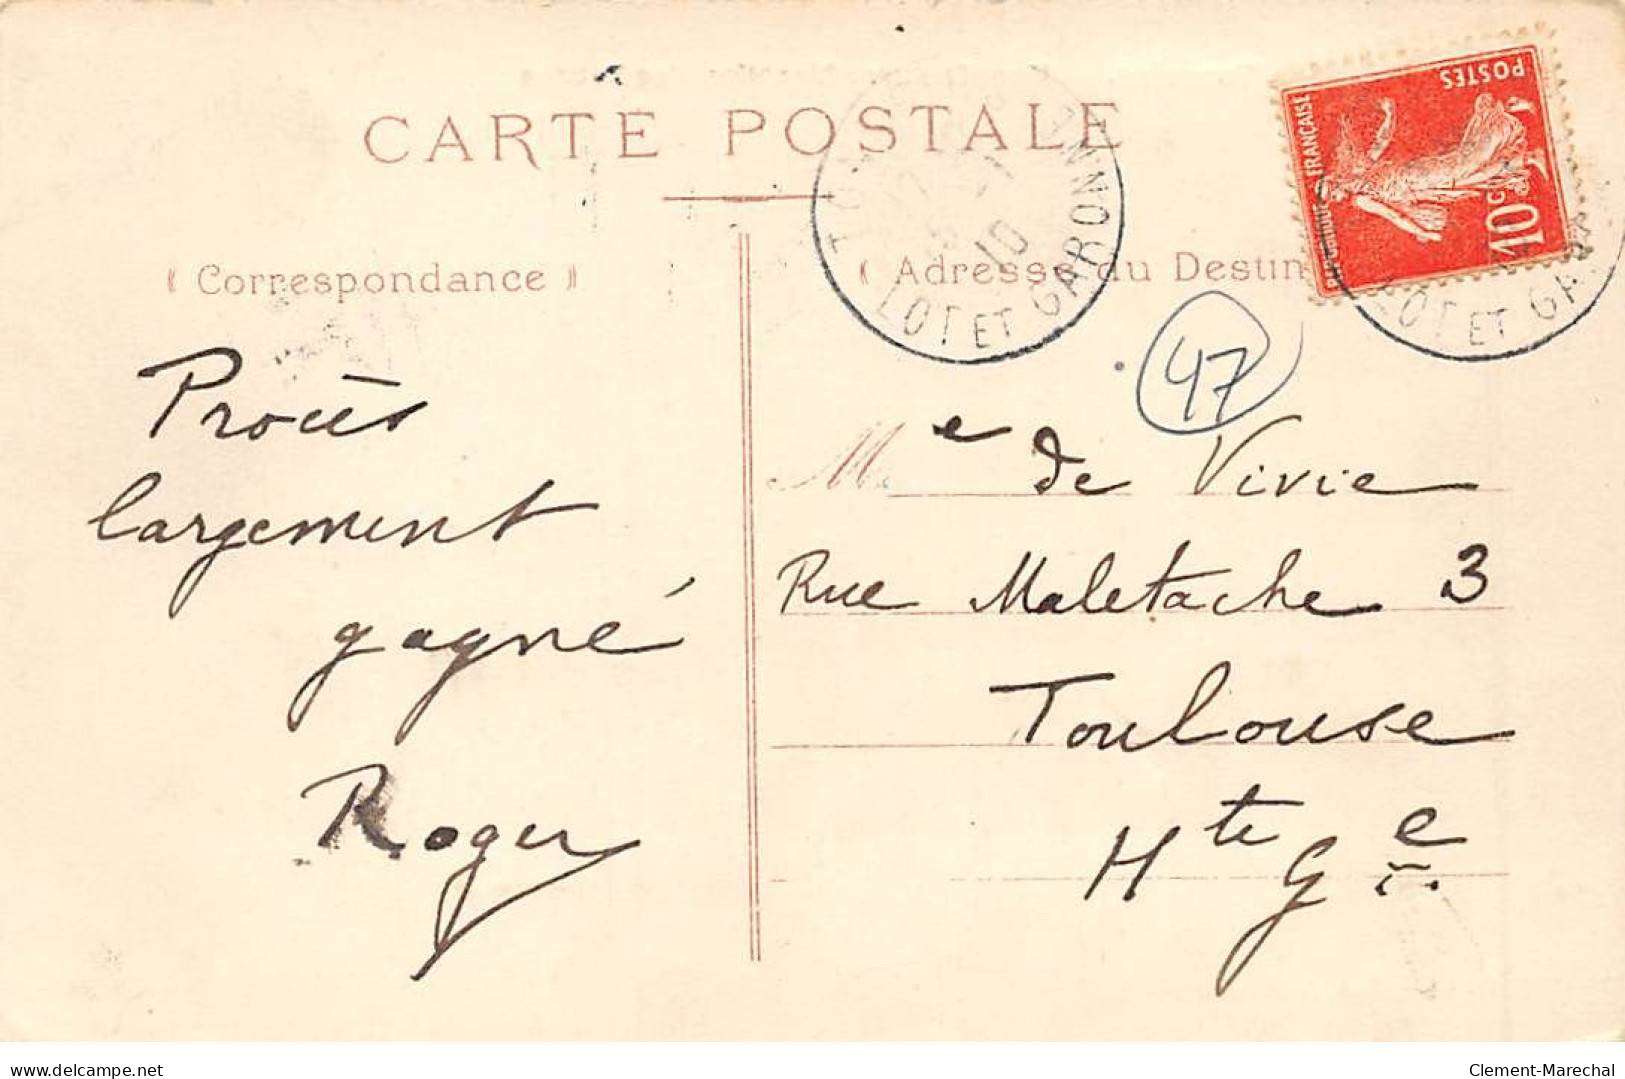 CARTE POSTALE
« Correspondance »
« Adresse du Destin
POSTES
FRANÇAISE
10c
LOT ET GARONNE
10
LOT ET GA
47
Procès
largement
gagné
Roger
Me de Vivie
Rue Maletache 3
Toulouse
Hte Ge
www.delcampe.net
Clement-Marechal